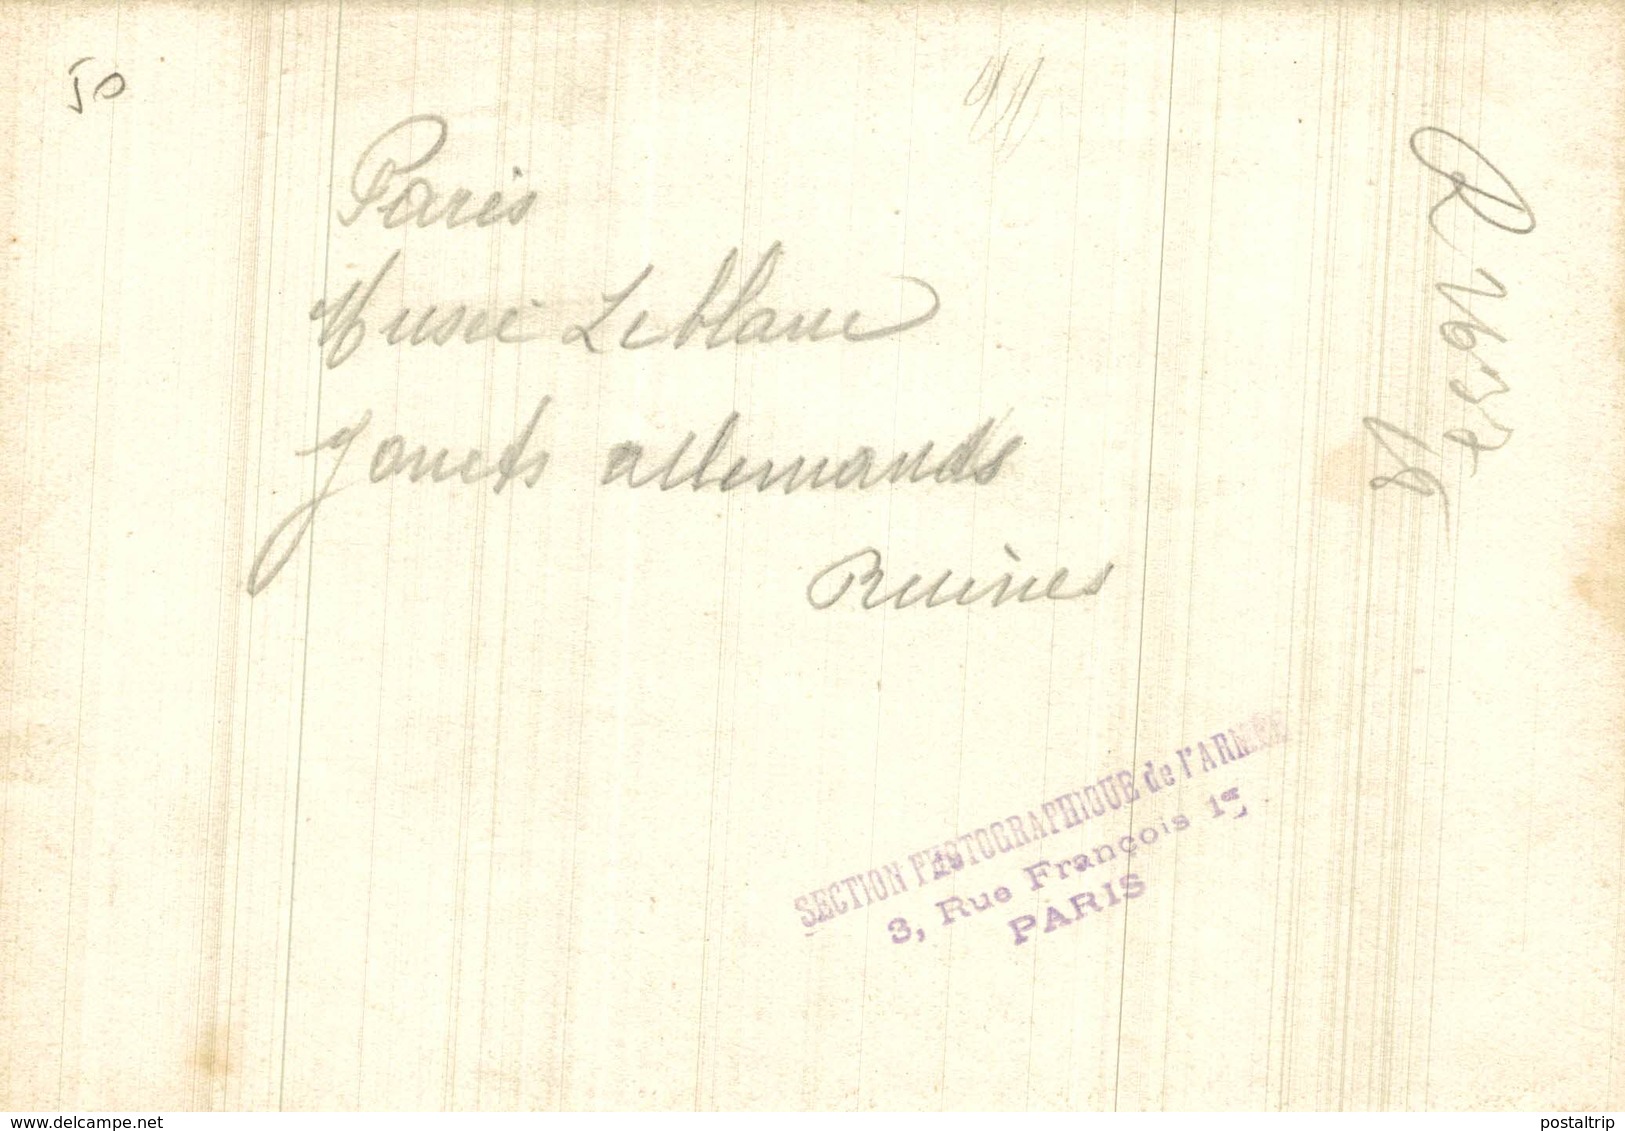 50
Paris
Musée Leblanc
Jouets allemands
Ruines
SECTION PHOTOGRAPHIQUE de l'ARMÉE
3, Rue François 1er
PARIS
delcampe.net
postaltrip